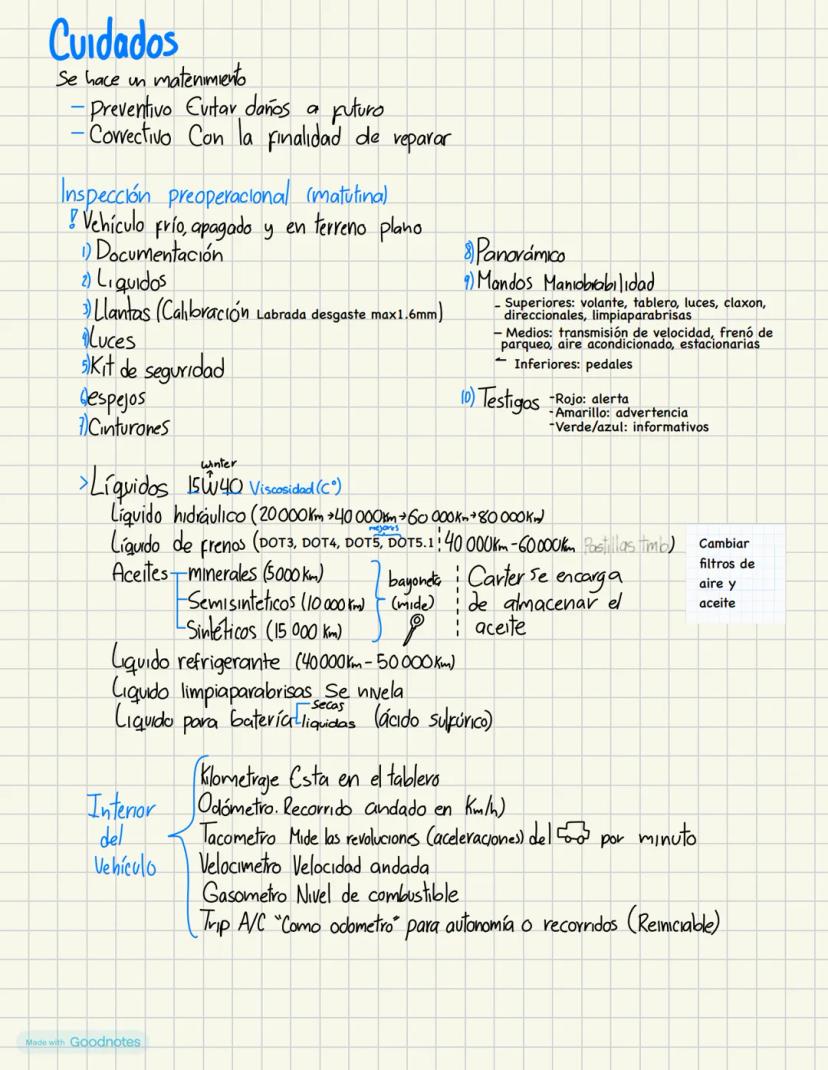 Cuidados
Se hace un matenimiento
– Preventivo Evitar daños a futuro
– Correctivo Con la finalidad de reparar
Inspección preoperacional (matutina)
! Vehículo frío, apagado y en terreno plano
1) Documentación
2) Líquidos
3) Llantas (Calibración Labrada desgaste max1.6mm)
4) Luces
5) Kit de seguridad
6) espejos
7) Cinturones
8) Panorámico
9) Mandos Maniobrabilidad
- Superiores: volante, tablero, luces, claxon, direccionales, limpiaparabrisas
- Medios: transmisión de velocidad, frenó de parqueo, aire acondicionado, estacionarias
- Inferiores: pedales
10) Testigos -Rojo: alerta
-Amarillo: advertencia
-Verde/azul: informativos
winter
> Líquidos 15W40 Viscosidad (C°)
Líquido hidráulico (20000Km→40000km→60000Km→80000Km)
mejores
Líquido de frenos (DOT3, DOT4, DOT5, DOT5.1 40000Km-60000Km Pastillas tmb)
Cambiar
filtros de
aire y
aceite
Aceites minerales (5000 km) bayoneta Carter se encarga
Semisinteticos (10000 km) (mide) de almacenar el
Sintéticos (15 000 Km) aceite
Liquido refrigerante (40000Km-50000Km)
Liquido limpiaparabrisas Se nivela
secas
Liquido para batería liquidas (ácido sulfúrico)
Interior
del
Vehículo
Kilometraje Esta en el tablero
Odómetro. Recorrido andado en Km/h)
Tacometro Mide las revoluciones (aceleraciones) del por minuto
Velocimetro Velocidad andada
Gasometro Nivel de combustible
Trip A/C "Como odometro" para autonomía o recorridos (Reiniciable)
Made with Goodnotes